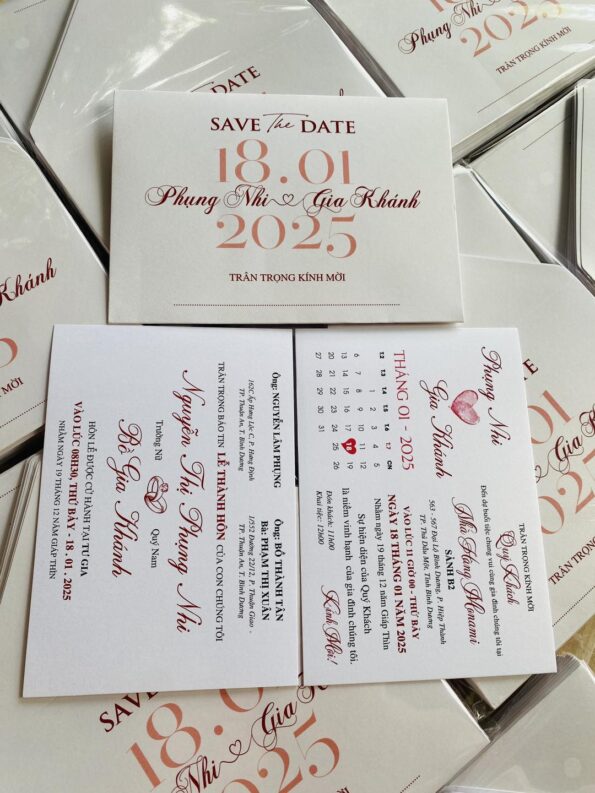 SAVE The DATE
18.01
Phụng Nhi Gia Khánh
2025
TRÂN TRỌNG KÍNH MỜI
Ông: NGUYỄN LÂM PHỤNG
TP. Thuận An, T. Bình Dương
Ông: BỒ THÀNH TÂN
Bà: PHẠM THỊ XUÂN
TP. Thuận An, T. Bình Dương
TRÂN TRỌNG BÁO TIN LỄ THÀNH HÔN CỦA CON CHÚNG TÔI
Nguyễn Thị Phụng Nhi
Trưởng Nữ
Quý Nam
Bồ Gia Khánh
HÔN LỄ ĐƯỢC CỬ HÀNH TẠI TƯ GIA
VÀO LÚC 08H30, THỨ BẢY - 18 . 01 . 2025
NHẰM NGÀY 19 THÁNG 12 NĂM GIÁP THÌN
Phụng Nhi
Gia Khánh
THÁNG 01 - 2025
T2 T3 T4 T5 T6 T7 CN
1 2 3 4 5
6 7 8 9 10 11 12
13 14 15 16 17 18 19
20 21 22 23 24 25 26
27 28 29 30 31
TRÂN TRỌNG KÍNH MỜI
Quý Khách
Đến dự buổi tiệc chung vui cùng gia đình chúng tôi tại
Nhà Hàng Monami
SẢNH B2
563 - 567 Đại Lộ Bình Dương, P. Hiệp Thành
TP. Thủ Dầu Một, Tỉnh Bình Dương
VÀO LÚC 11 GIỜ 00 - THỨ BẢY
NGÀY 18 THÁNG 01 NĂM 2025
Nhằm ngày 19 tháng 12 năm Giáp Thìn
Sự hiện diện của Quý Khách
là niềm vinh hạnh của gia đình chúng tôi.
Đón khách: 11h00
Khai tiệc: 12h00
Kính Mời!
Phụng Nhi
2025
TRÂN TRỌNG KÍNH MỜI
Khánh
KÍNH MỜI
Gia Khánh
KÍNH MỜI
SAVE
18.01
Nhi Gia Khánh
2025